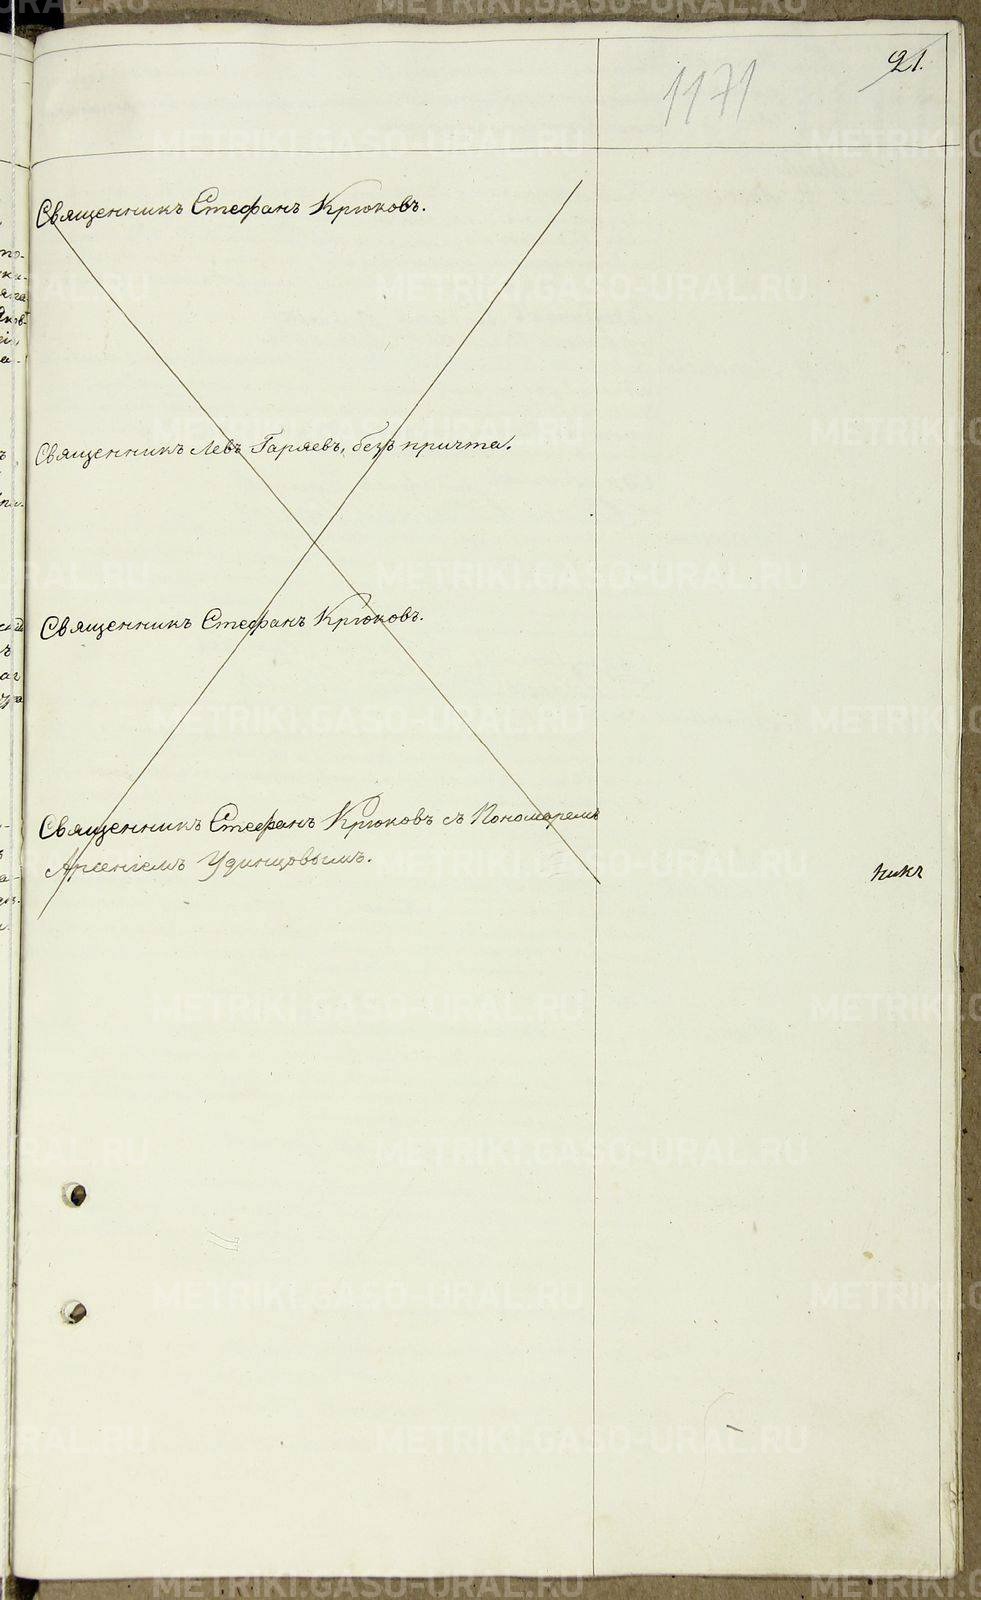 21.
1171
Священникъ Стефанъ Крюковъ.
Священникъ Левъ Гаряевъ, безъ причта.
Священникъ Стефанъ Крюковъ.
Священникъ Стефанъ Крюковъ съ Пономаремъ
Арсеніемъ Удинцовымъ.
никъ
METRIKI.GASO-URAL.RU